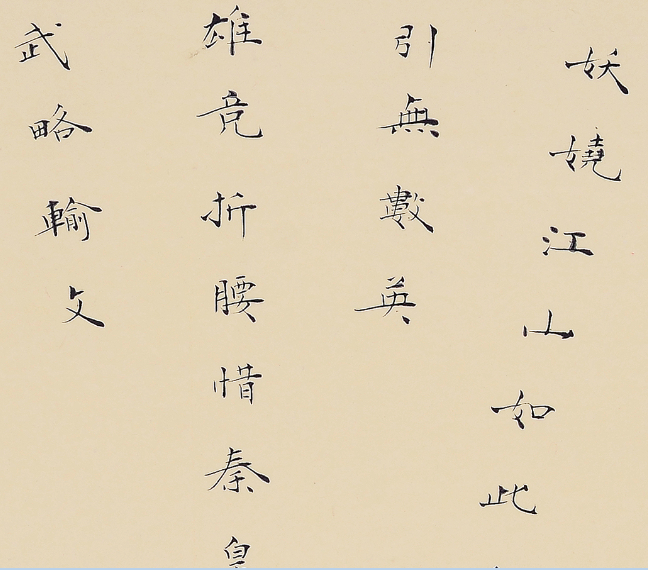 妖嬈江山如此
引無數英
雄竟折腰惜秦皇
武略輸文